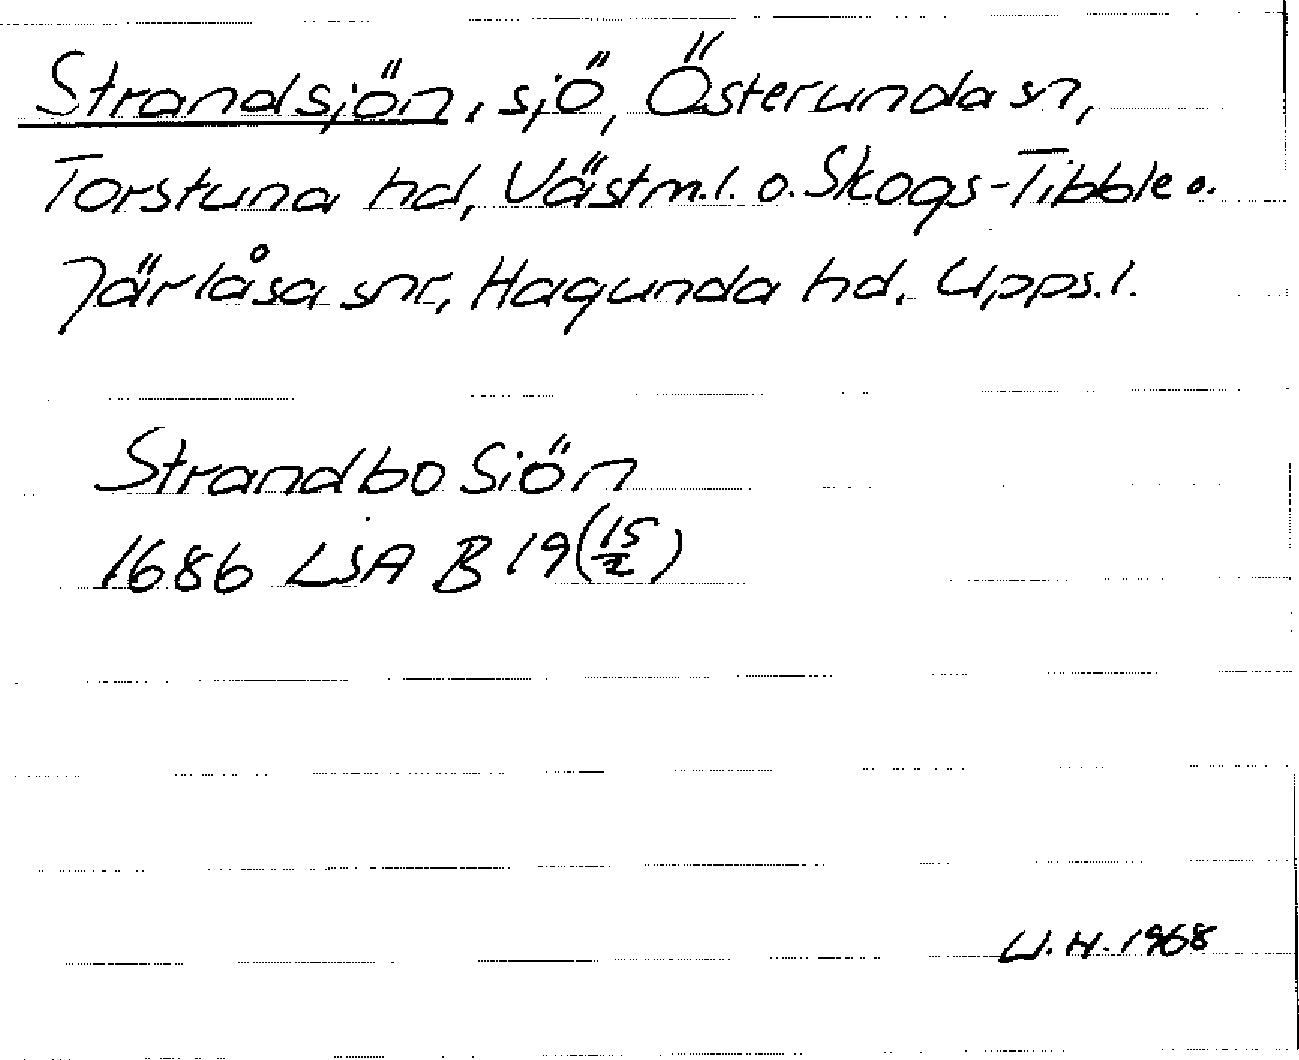 Strandsjön, sjö, Österunda sn,
Torstuna hd, Västm.l. o. Skogs-Tibble o.
Järlåsa snr, Hagunda hd. Upps.l.
Strandbo Siön
1686 LSA B 19 (15/2)
U.H. 1968